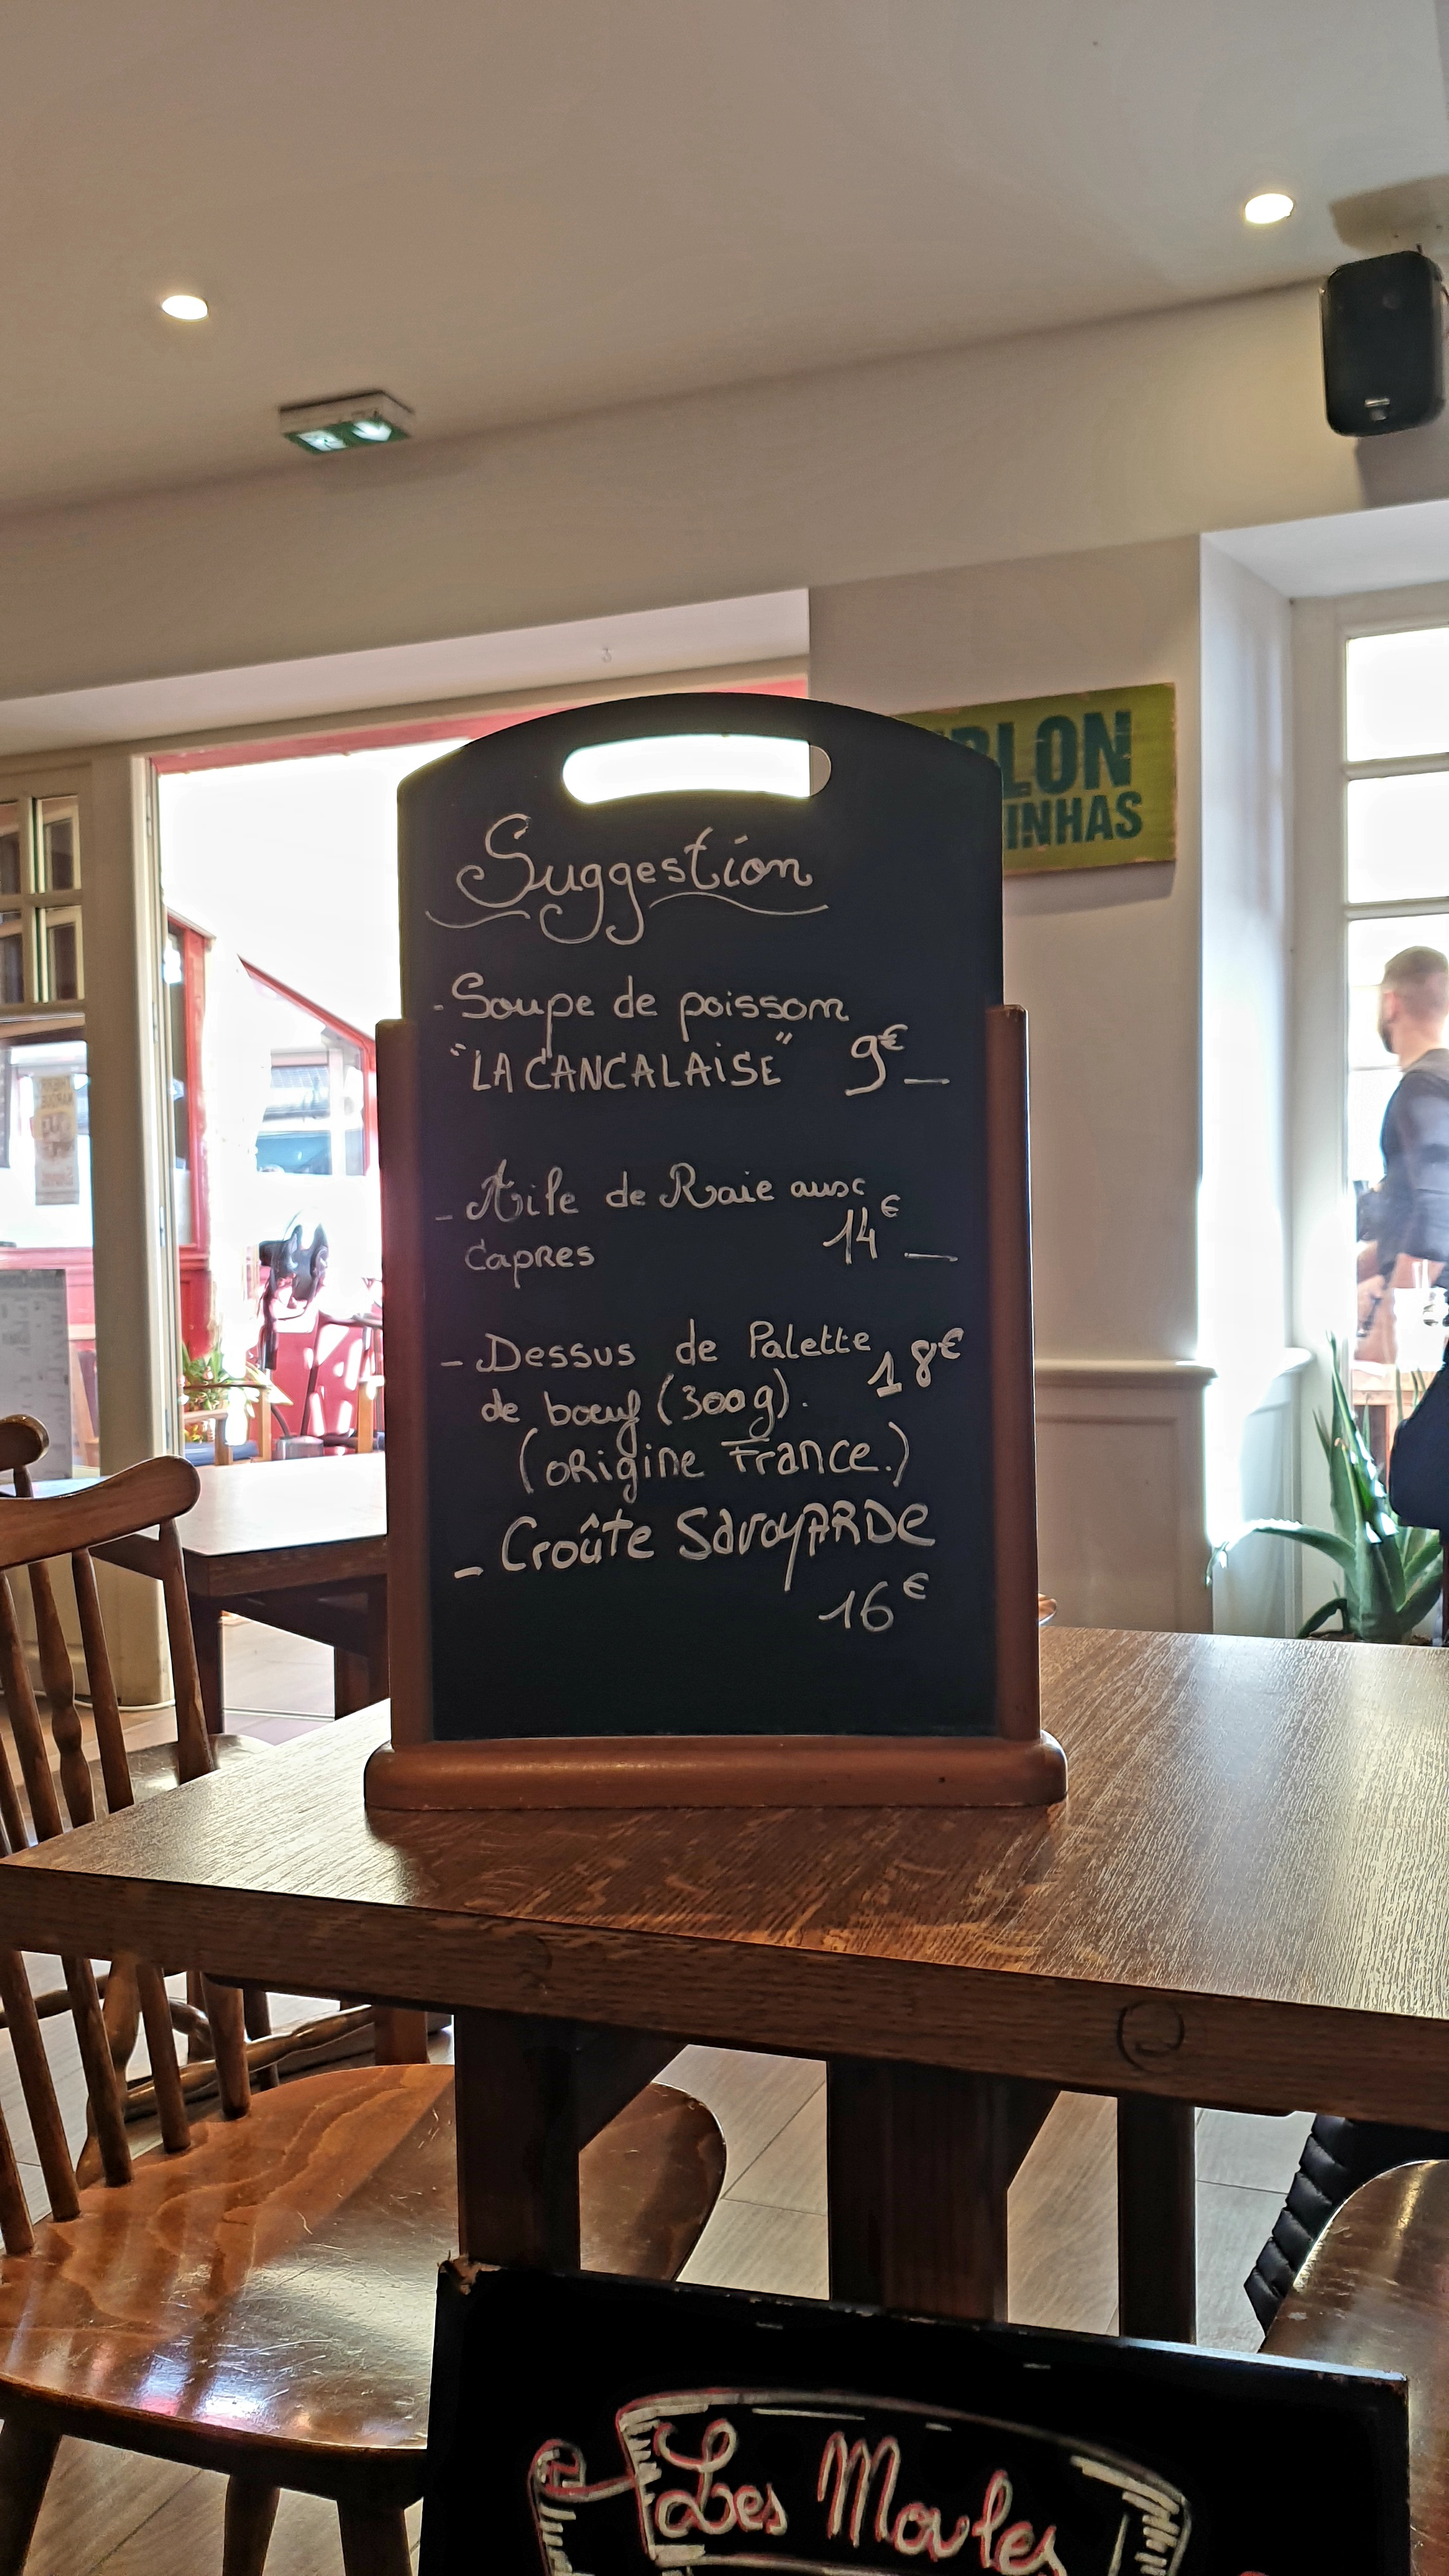 LON
INHAS
Suggestion
- Soupe de poisson
"LA CANCALAISE" 9€_
- Aile de Raie aux
Capres 14€_
- Dessus de Palette 18€
de bœuf (300g).
(origine France.)
- Croûte SavoyARDe
16€
Les Moules